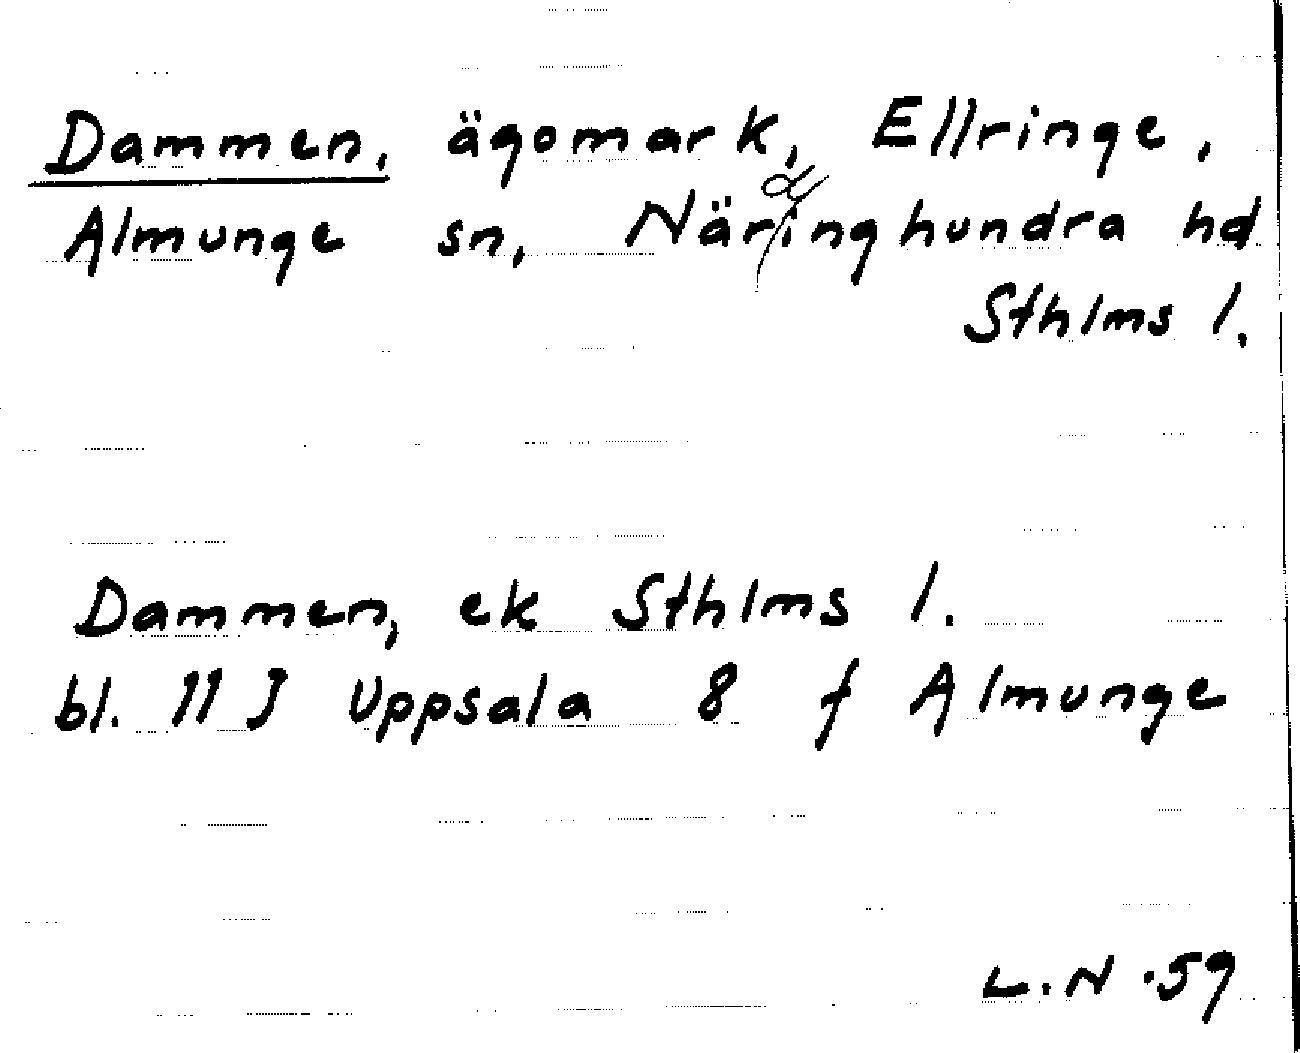 Dammen, ägomark, Ellringe,
Almunge sn, Närdinghundra hd
Sthlms l.
Dammen, ek Sthlms l.
bl. 11 J Uppsala 8 f Almunge
L.N. 59